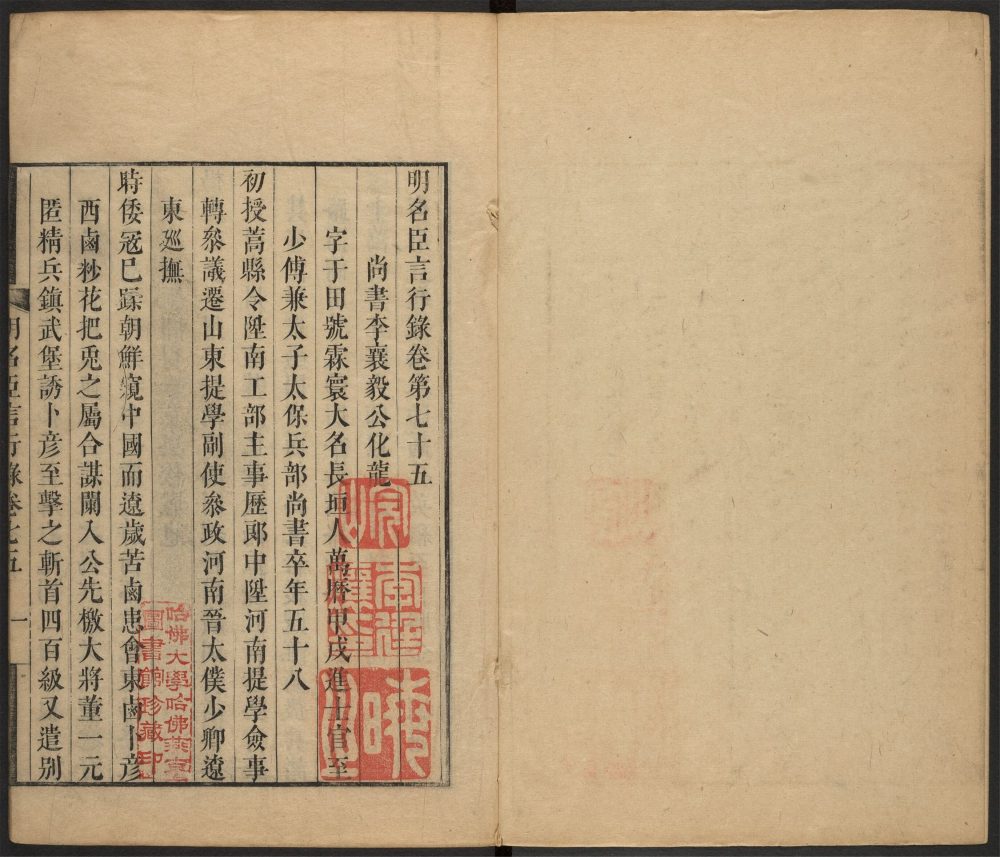 明名臣言行錄卷第七十五
尚書李襄毅公化龍
字于田號霖寰大名長垣人萬曆甲戌進士官至
少傅兼太子太保兵部尚書卒年五十八
初授蒿縣令陞南工部主事歷郎中陞河南提學僉事
轉叅議遷山東提學副使叅政河南晉太僕少卿遼
東廵撫
時倭冦已蹂朝鮮窺中國而遼歲苦鹵患會東鹵卜彦
西鹵炒花把兎之屬合謀闌入公先檄大將董一元
匿精兵鎮武堡誘卜彦至擊之斬首四百級又遣别
明名臣言行錄卷七五
一
哈佛大學哈佛燕京
圖書館珍藏印